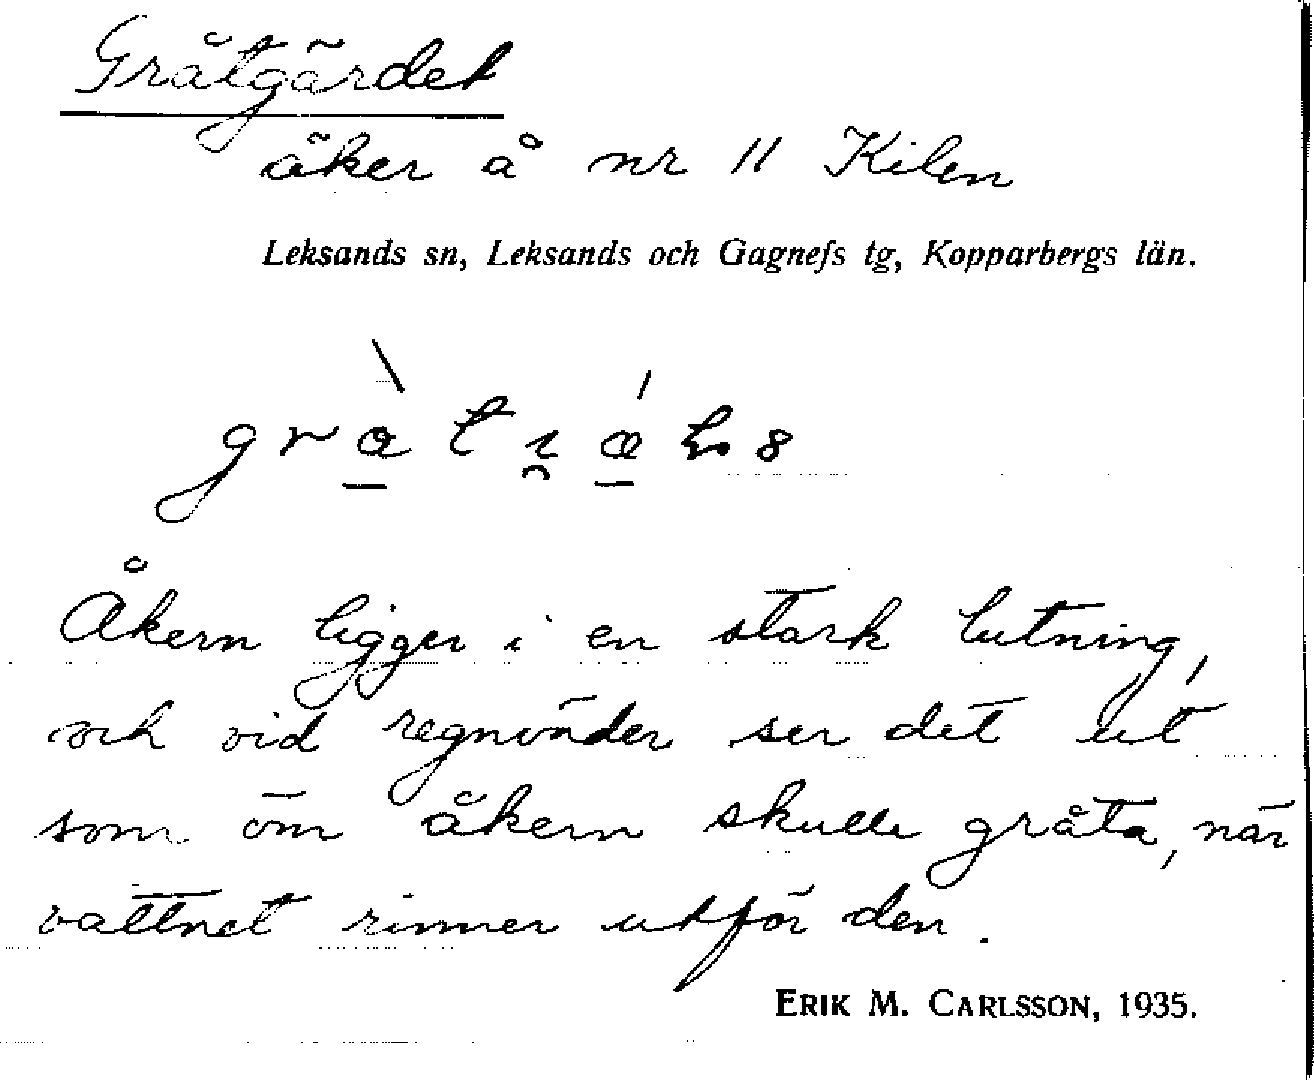 Gråtgärdet
åker å nr 11 Kilen
Leksands sn, Leksands och Gagnefs tg, Kopparbergs län.
Åkern ligger i en stark lutning,
och vid regnväder ser det ut
som om åkern skulle gråta, när
vattnet rinner utför den.
ERIK M. CARLSSON, 1935.